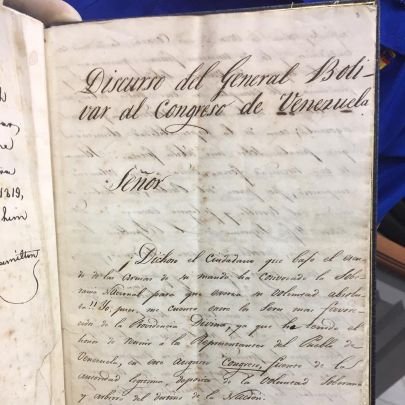 1819,
him
Hamilton
Discurso del General Boli-
var al Congreso de Venezuela
Señor
¡Dichoso el Ciudadano que bajo el escu-
do de las armas de su mando ha convocado la Sobe-
rania Nacional para que exerza su voluntad absolu-
ta!! Yo, pues, me cuento entre los seres mas favore-
cidos de la Providencia Divina, ya que he tenido el
honor de reunir a los Representantes del Pueblo de
Venezuela, en este augusto Congreso, fuente de la
autoridad legitima, deposito de la Voluntad Soberana
y arbitro del destino de la Nacion.